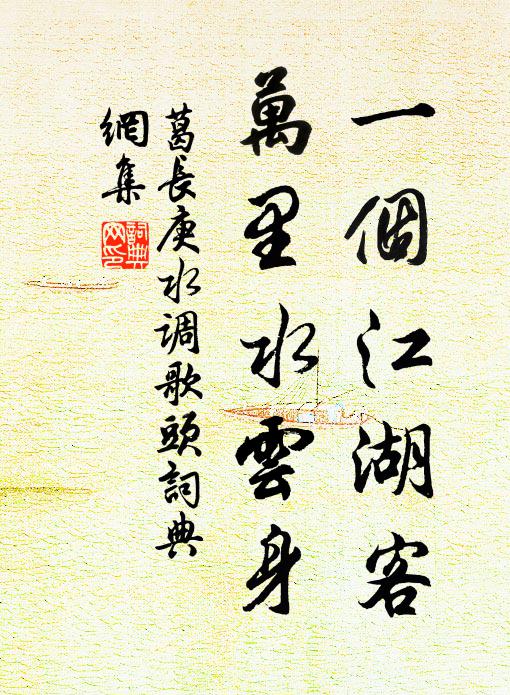 一個江湖客
萬里水雲身
葛長庚水調歌頭詞典
網集
詞典
网印